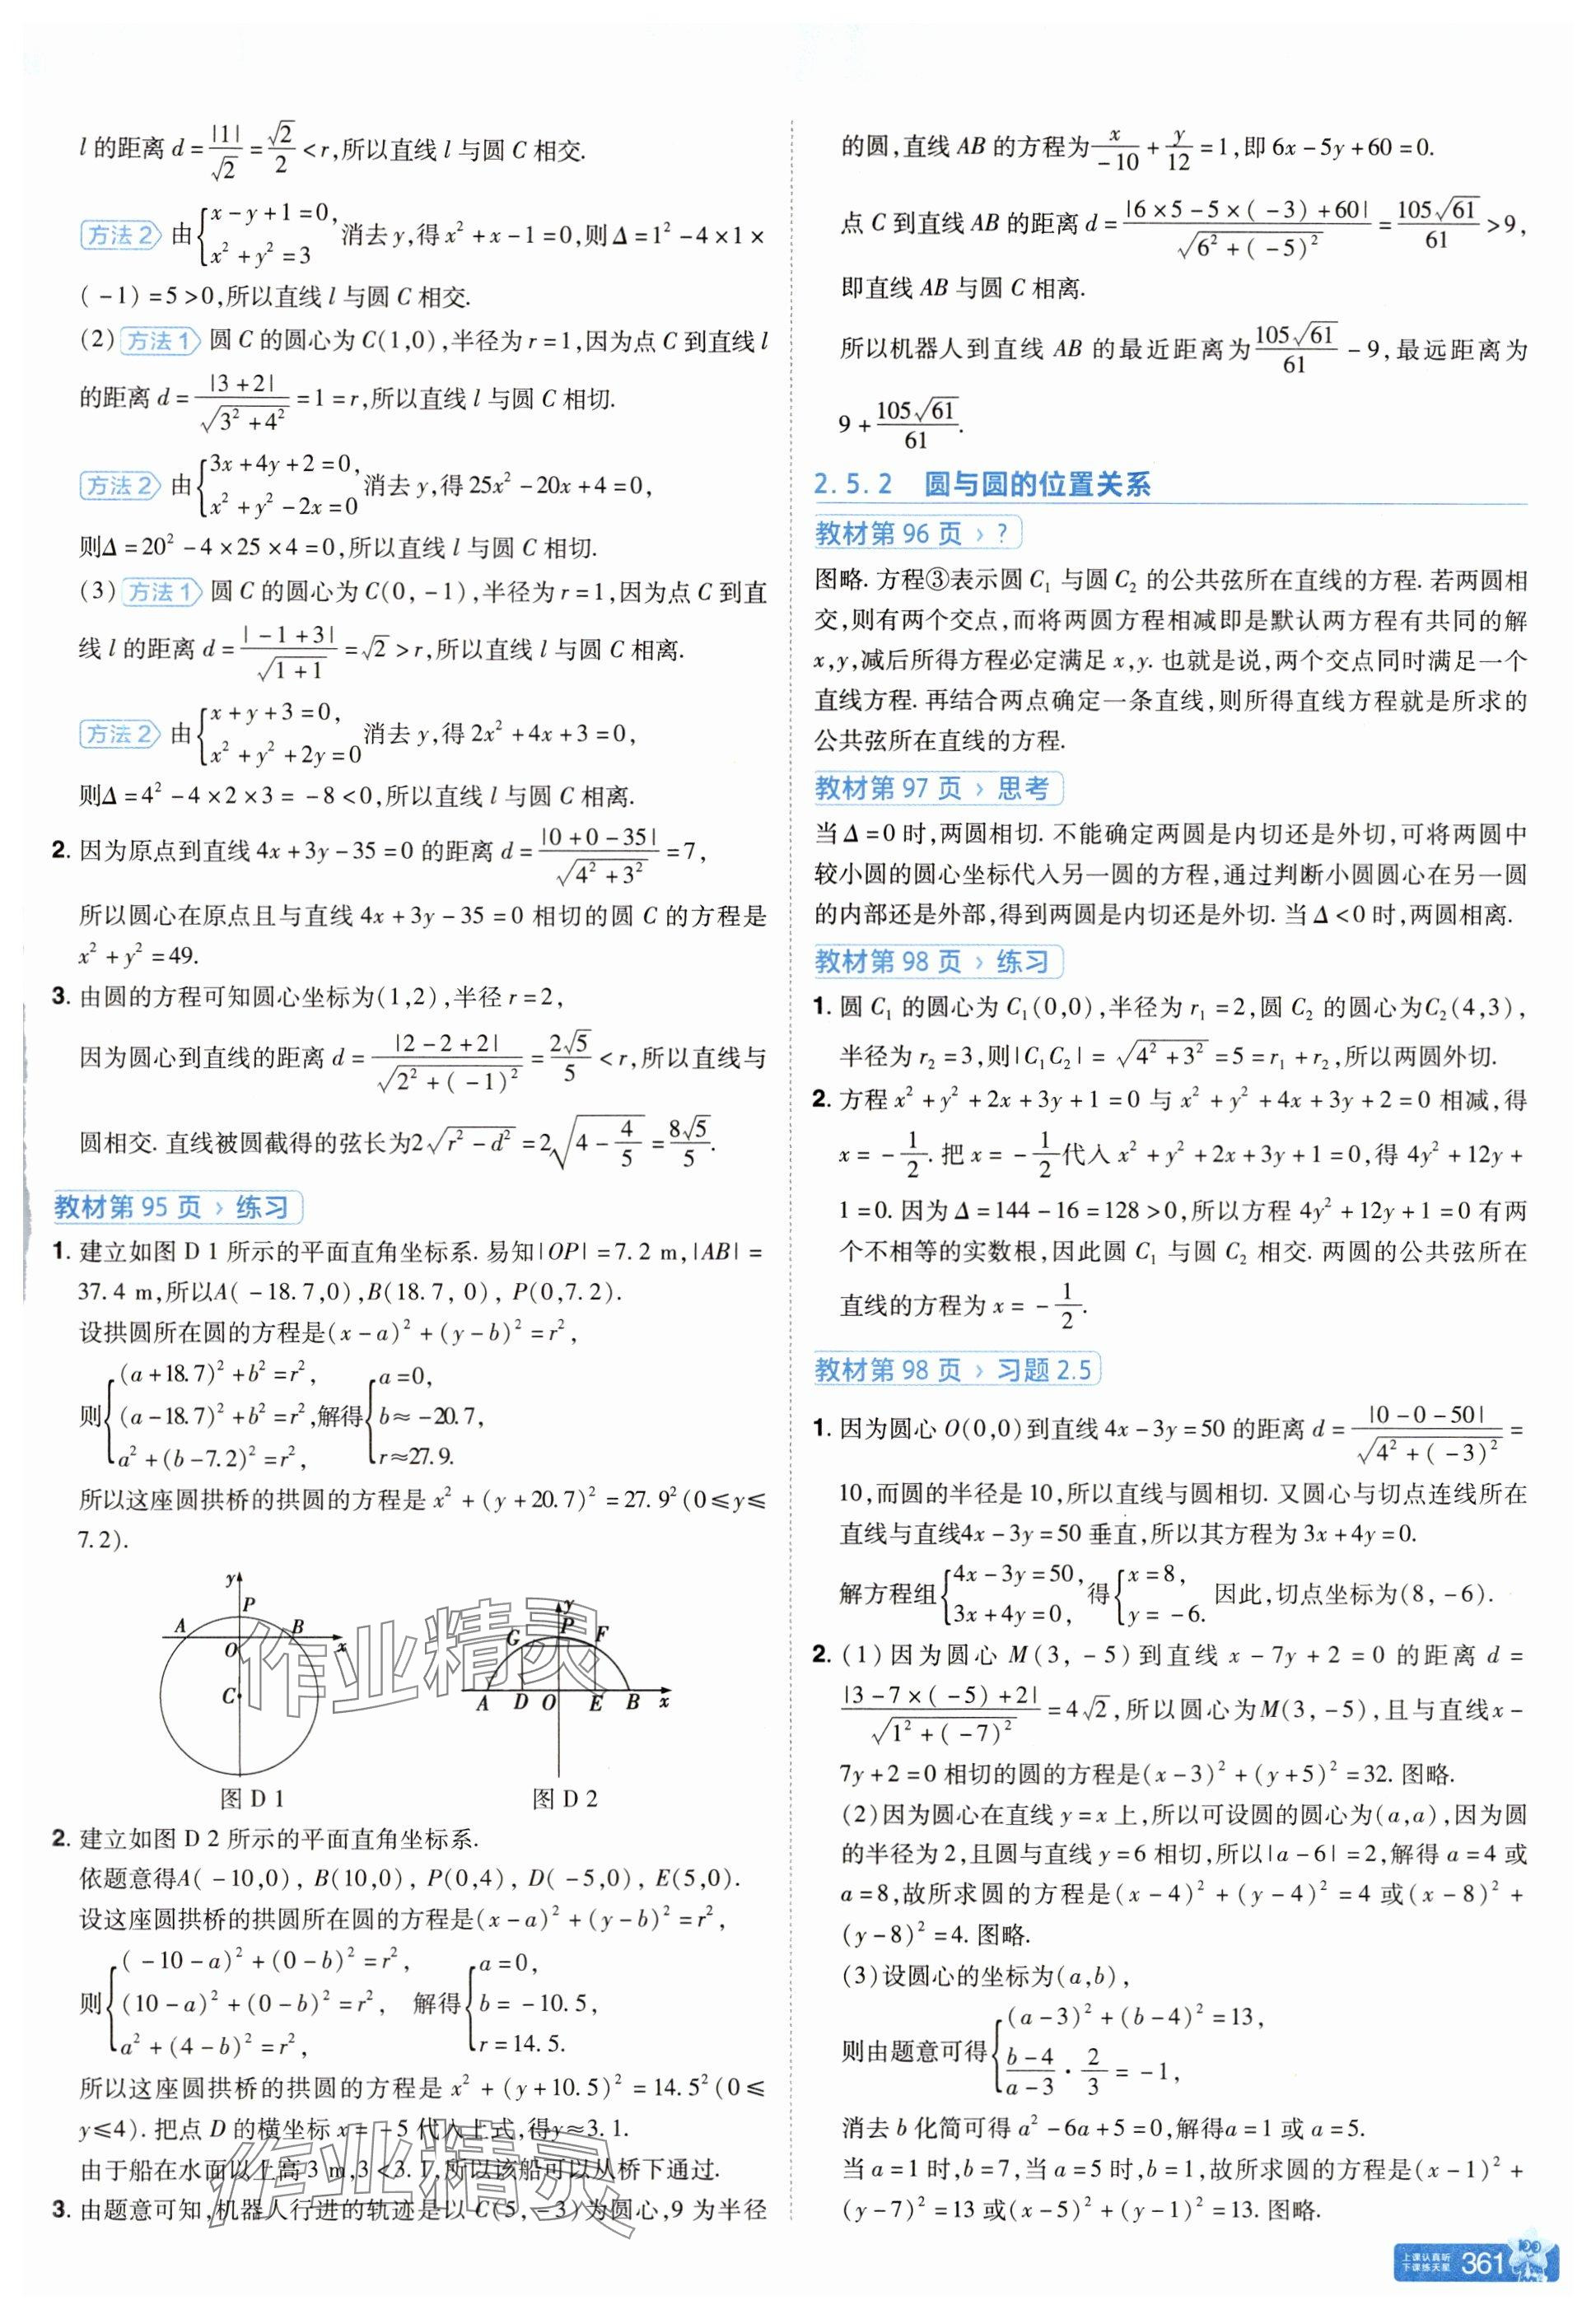 l 的距离 d = |1|/√2 = √2/2 < r,所以直线 l 与圆 C 相交.
方法2 由{x-y+1=0, x²+y²=3 消去 y,得 x²+x-1=0,则 Δ=1²-4×1×
(-1)=5>0,所以直线 l 与圆 C 相交.
(2) 方法1 圆 C 的圆心为 C(1,0),半径为 r=1,因为点 C 到直线 l
的距离 d = |3+2|/√(3²+4²) = 1 = r,所以直线 l 与圆 C 相切.
方法2 由{3x+4y+2=0, x²+y²-2x=0 消去 y,得 25x²-20x+4=0,
则Δ=20²-4×25×4=0,所以直线 l 与圆 C 相切.
(3) 方法1 圆 C 的圆心为 C(0,-1),半径为 r=1,因为点 C 到直
线 l 的距离 d = |-1+3|/√(1+1) = √2 > r,所以直线 l 与圆 C 相离.
方法2 由{x+y+3=0, x²+y²+2y=0 消去 y,得 2x²+4x+3=0,
则Δ=4²-4×2×3=-8<0,所以直线 l 与圆 C 相离.
2. 因为原点到直线 4x+3y-35=0 的距离 d = |0+0-35|/√(4²+3²) = 7,
所以圆心在原点且与直线 4x+3y-35=0 相切的圆 C 的方程是
x²+y²=49.
3. 由圆的方程可知圆心坐标为(1,2),半径 r=2,
因为圆心到直线的距离 d = |2-2+2|/√(2²+(-1)²) = 2√5/5 < r,所以直线与
圆相交. 直线被圆截得的弦长为2√(r²-d²) = 2√(4-4/5) = 8√5/5.
教材第 95 页 › 练习
1. 建立如图 D 1 所示的平面直角坐标系. 易知|OP|=7.2 m,|AB|=
37.4 m,所以A(-18.7,0),B(18.7,0),P(0,7.2).
设拱圆所在圆的方程是(x-a)²+(y-b)²=r²,
则{(a+18.7)²+b²=r², (a-18.7)²+b²=r², a²+(b-7.2)²=r², 解得{a=0, b≈-20.7, r≈27.9.
所以这座圆拱桥的拱圆的方程是 x²+(y+20.7)²=27.9²(0≤y≤
7.2).
y
P
A
B
O
x
C
图 D 1
y
G
P
F
A
D
O
E
B
x
图 D 2
2. 建立如图 D 2 所示的平面直角坐标系.
依题意得A(-10,0),B(10,0),P(0,4),D(-5,0),E(5,0).
设这座圆拱桥的拱圆所在圆的方程是(x-a)²+(y-b)²=r²,
则{(-10-a)²+(0-b)²=r², (10-a)²+(0-b)²=r², a²+(4-b)²=r², 解得{a=0, b=-10.5, r=14.5.
所以这座圆拱桥的拱圆的方程是 x²+(y+10.5)²=14.5²(0≤
y≤4). 把点 D 的横坐标 x=-5 代入上式,得y≈3.1.
由于船在水面以上高 3 m,3<3.1,所以该船可以从桥下通过.
3. 由题意可知,机器人行进的轨迹是以 C(5,-3)为圆心,9 为半径
作业精灵
作业精灵
的圆,直线 AB 的方程为 x/-10 + y/12 = 1,即 6x-5y+60=0.
点 C 到直线 AB 的距离 d = |6×5-5×(-3)+60|/√(6²+(-5)²) = 105√61/61 > 9,
即直线 AB 与圆 C 相离.
所以机器人到直线 AB 的最近距离为 105√61/61 - 9,最远距离为
9 + 105√61/61.
2.5.2 圆与圆的位置关系
教材第 96 页 › ?
图略. 方程③表示圆 C₁ 与圆 C₂ 的公共弦所在直线的方程. 若两圆相
交,则有两个交点,而将两圆方程相减即是默认两方程有共同的解
x,y,减后所得方程必定满足 x,y. 也就是说,两个交点同时满足一个
直线方程. 再结合两点确定一条直线,则所得直线方程就是所求的
公共弦所在直线的方程.
教材第 97 页 › 思考
当 Δ=0 时,两圆相切. 不能确定两圆是内切还是外切,可将两圆中
较小圆的圆心坐标代入另一圆的方程,通过判断小圆圆心在另一圆
的内部还是外部,得到两圆是内切还是外切. 当 Δ<0 时,两圆相离.
教材第 98 页 › 练习
1. 圆 C₁ 的圆心为 C₁(0,0),半径为 r₁=2,圆 C₂ 的圆心为C₂(4,3),
半径为 r₂=3,则|C₁C₂|=√(4²+3²)=5=r₁+r₂,所以两圆外切.
2. 方程 x²+y²+2x+3y+1=0 与 x²+y²+4x+3y+2=0 相减,得
x=-1/2. 把 x=-1/2代入 x²+y²+2x+3y+1=0,得 4y²+12y+
1=0. 因为 Δ=144-16=128>0,所以方程 4y²+12y+1=0 有两
个不相等的实数根,因此圆 C₁ 与圆 C₂ 相交. 两圆的公共弦所在
直线的方程为 x=-1/2.
教材第 98 页 › 习题 2.5
1. 因为圆心 O(0,0)到直线 4x-3y=50 的距离 d = |0-0-50|/√(4²+(-3)²) =
10,而圆的半径是 10,所以直线与圆相切. 又圆心与切点连线所在
直线与直线4x-3y=50 垂直,所以其方程为 3x+4y=0.
解方程组{4x-3y=50, 3x+4y=0, 得{x=8, y=-6. 因此,切点坐标为(8,-6).
2. (1)因为圆心 M(3,-5)到直线 x-7y+2=0 的距离 d =
|3-7×(-5)+2|/√(1²+(-7)²) = 4√2,所以圆心为M(3,-5),且与直线x-
7y+2=0 相切的圆的方程是(x-3)²+(y+5)²=32. 图略.
(2)因为圆心在直线 y=x 上,所以可设圆的圆心为(a,a),因为圆
的半径为 2,且圆与直线 y=6 相切,所以|a-6|=2,解得 a=4 或
a=8,故所求圆的方程是(x-4)²+(y-4)²=4 或(x-8)²+
(y-8)²=4. 图略.
(3)设圆心的坐标为(a,b),
则由题意可得{(a-3)²+(b-4)²=13, (b-4)/(a-3)·2/3=-1,
消去 b 化简可得 a²-6a+5=0,解得a=1 或 a=5.
当 a=1 时,b=7,当 a=5 时,b=1,故所求圆的方程是(x-1)²+
(y-7)²=13 或(x-5)²+(y-1)²=13. 图略.
上课认真听
下课练天星
361